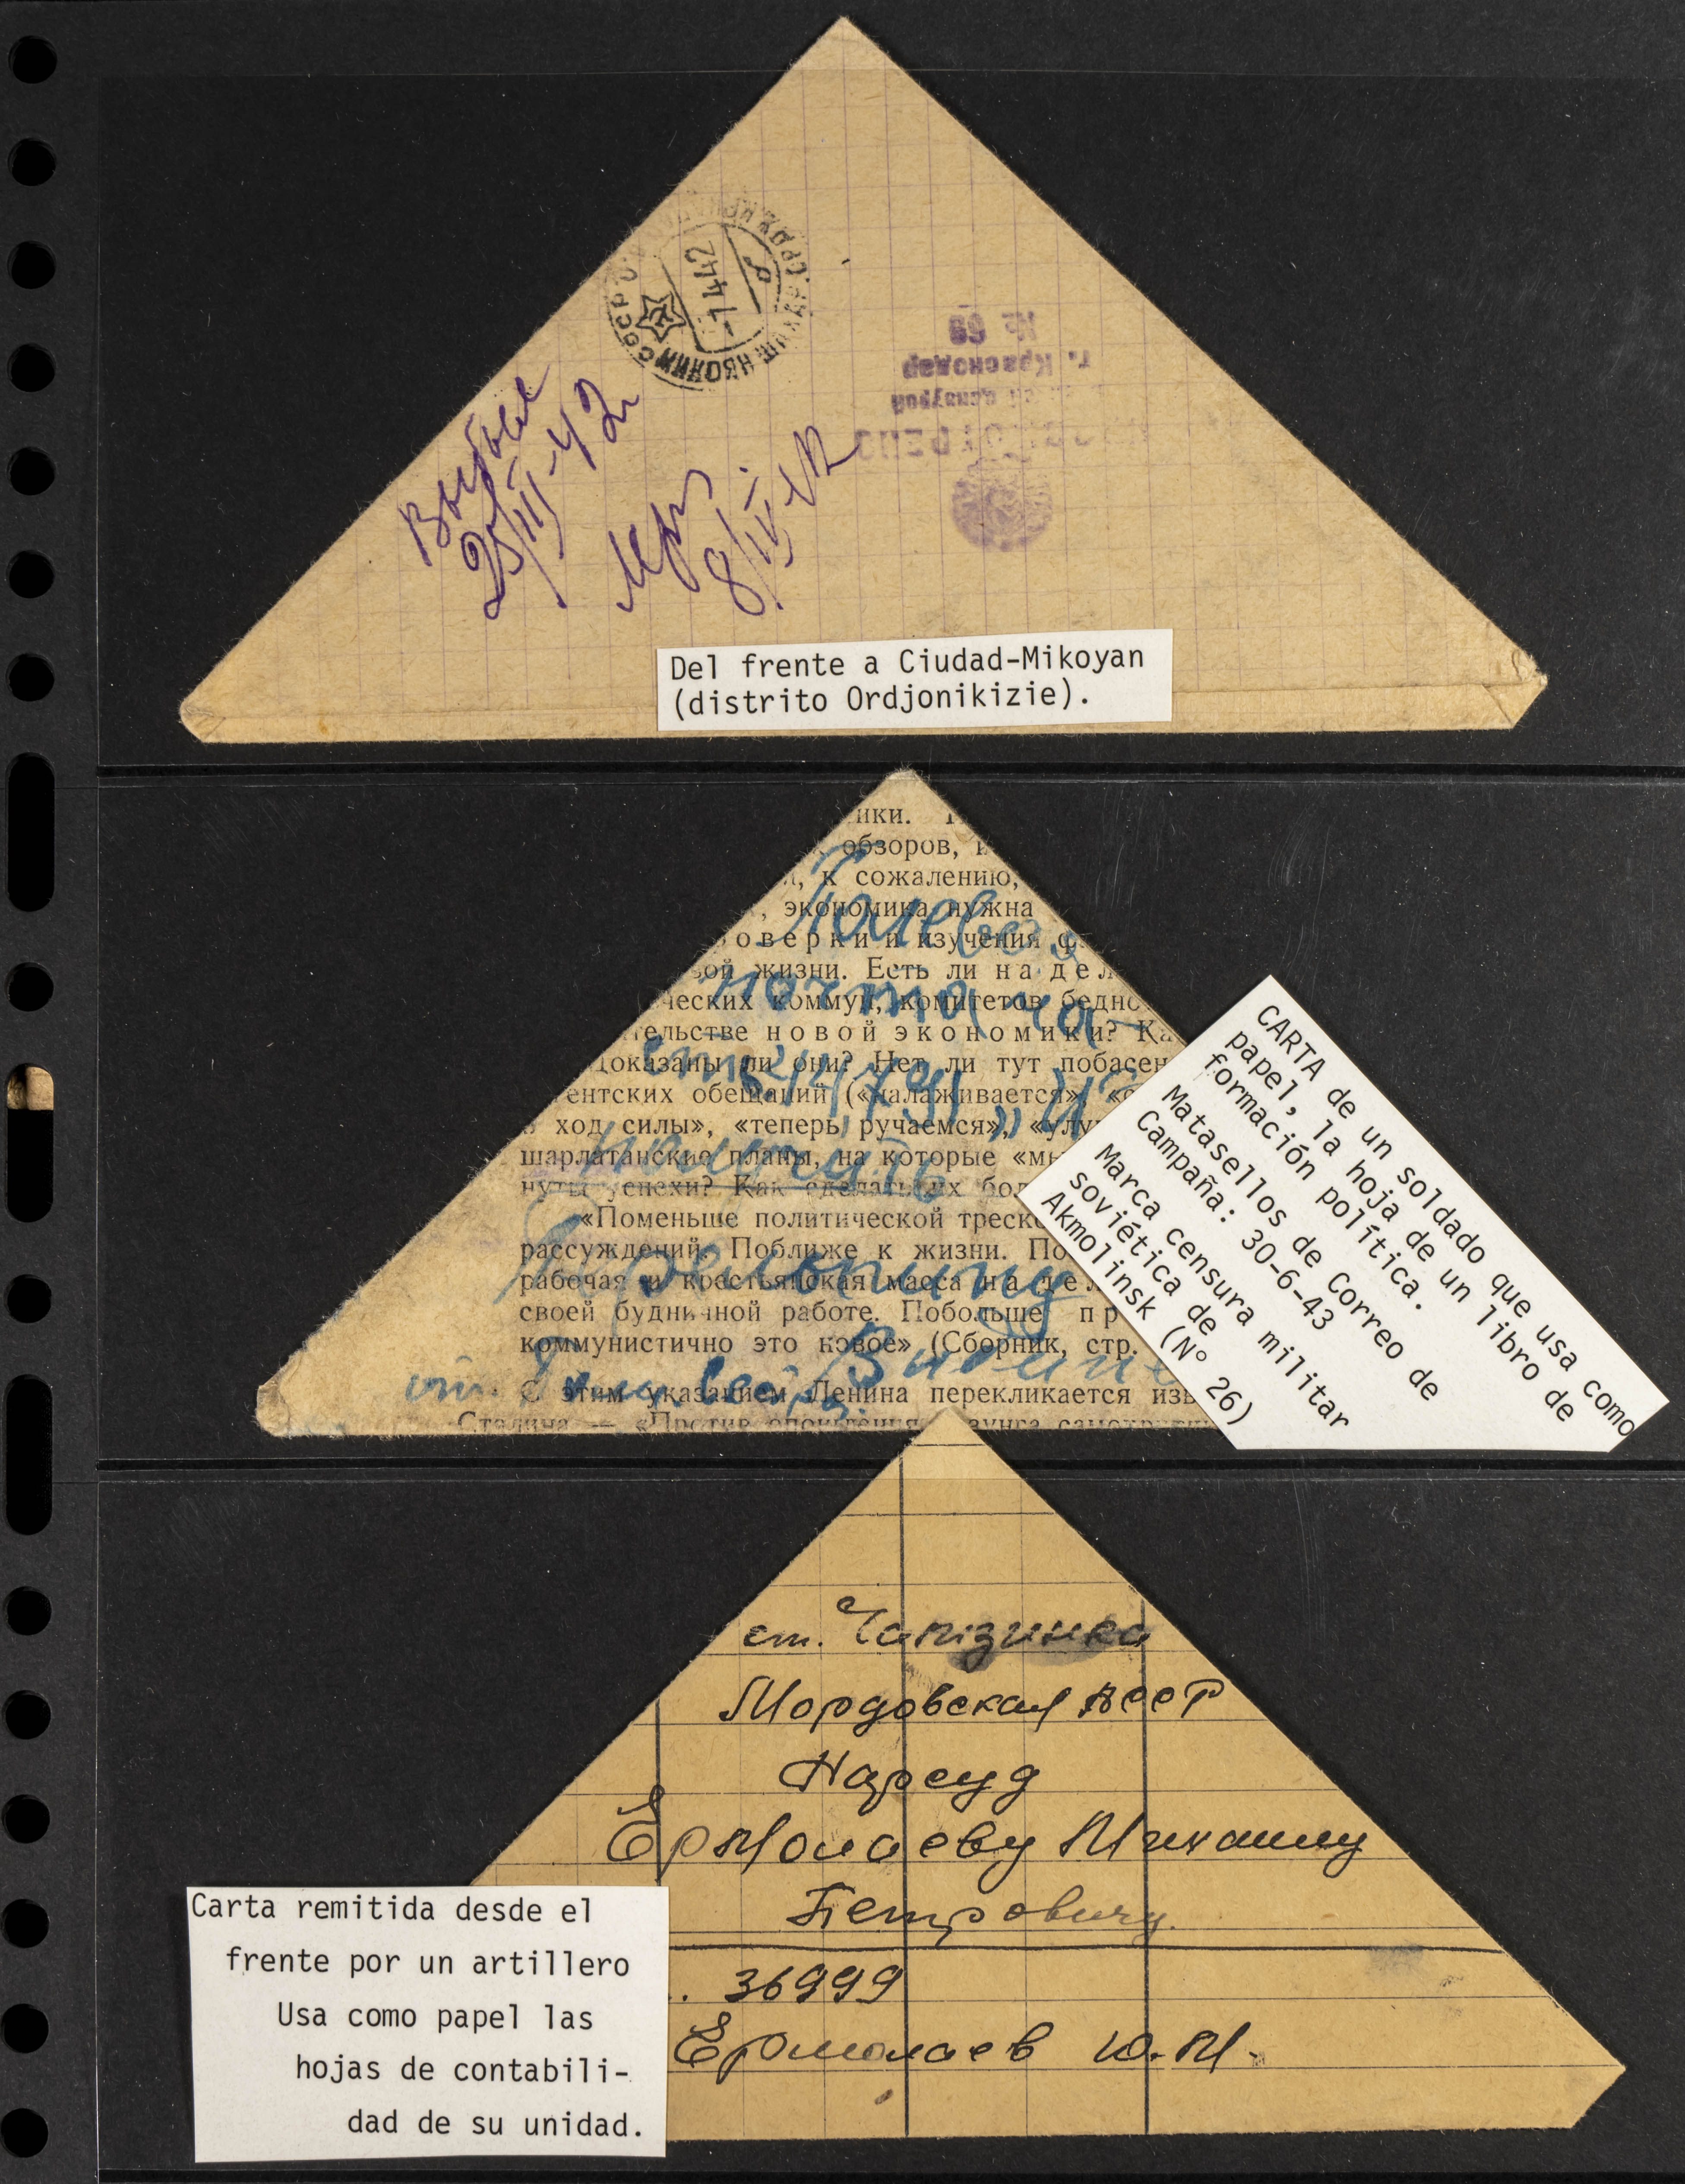 МИКОЯН ШАХАР
-7 4 42
№ 69
г. Краснодар
цензурой
25/III-42
8/IV-42
Del frente a Ciudad-Mikoyan
(distrito Ordjonikizie).
ики.
обзоров, и
, к сожалению,
, экономика нужна
оверки и изучения
ой жизни. Есть ли на дел
ческих коммун, комитетов бедно
тельстве новой экономики? Ка
доказаны ли они? Нет ли тут побасен
ентских обещаний («налаживается», «
ход силы», «теперь ручаемся», «улу
шарлатанские планы, на которые «мы
нуты успехи? Как сделать их бол
«Поменьше политической треско
рассуждений. Поближе к жизни. По
рабочая и крестьянская масса на дел
своей будничной работе. Побольше пр
коммунистично это новое» (Сборник, стр.
С этим указанием Ленина перекликается из
Сталина — «Против опошления лозунга самокритики
Полевая
почта ча-
сть 44791 „И"
CARTA de un soldado que usa como
papel, la hoja de un libro de
formación política.
Matasellos de Correo de
Campaña: 30-6-43
Marca censura militar
soviética de
Akmolinsk (N° 26)
ст. Чамзинка
Мордовская АССР
Нарсуд
Ермолаеву Михаилу
Петровичу.
. 36999
Ермолаев Ю.М.
Carta remitida desde el
frente por un artillero
Usa como papel las
hojas de contabili-
dad de su unidad.